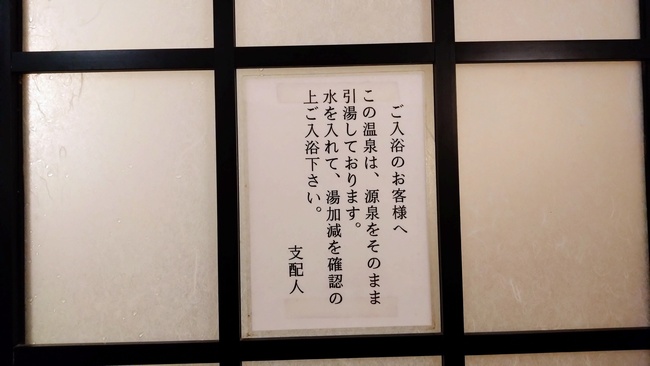 ご入浴のお客様へ
この温泉は、源泉をそのまま
引湯しております。
水を入れて、湯加減を確認の
上ご入浴下さい。
支配人